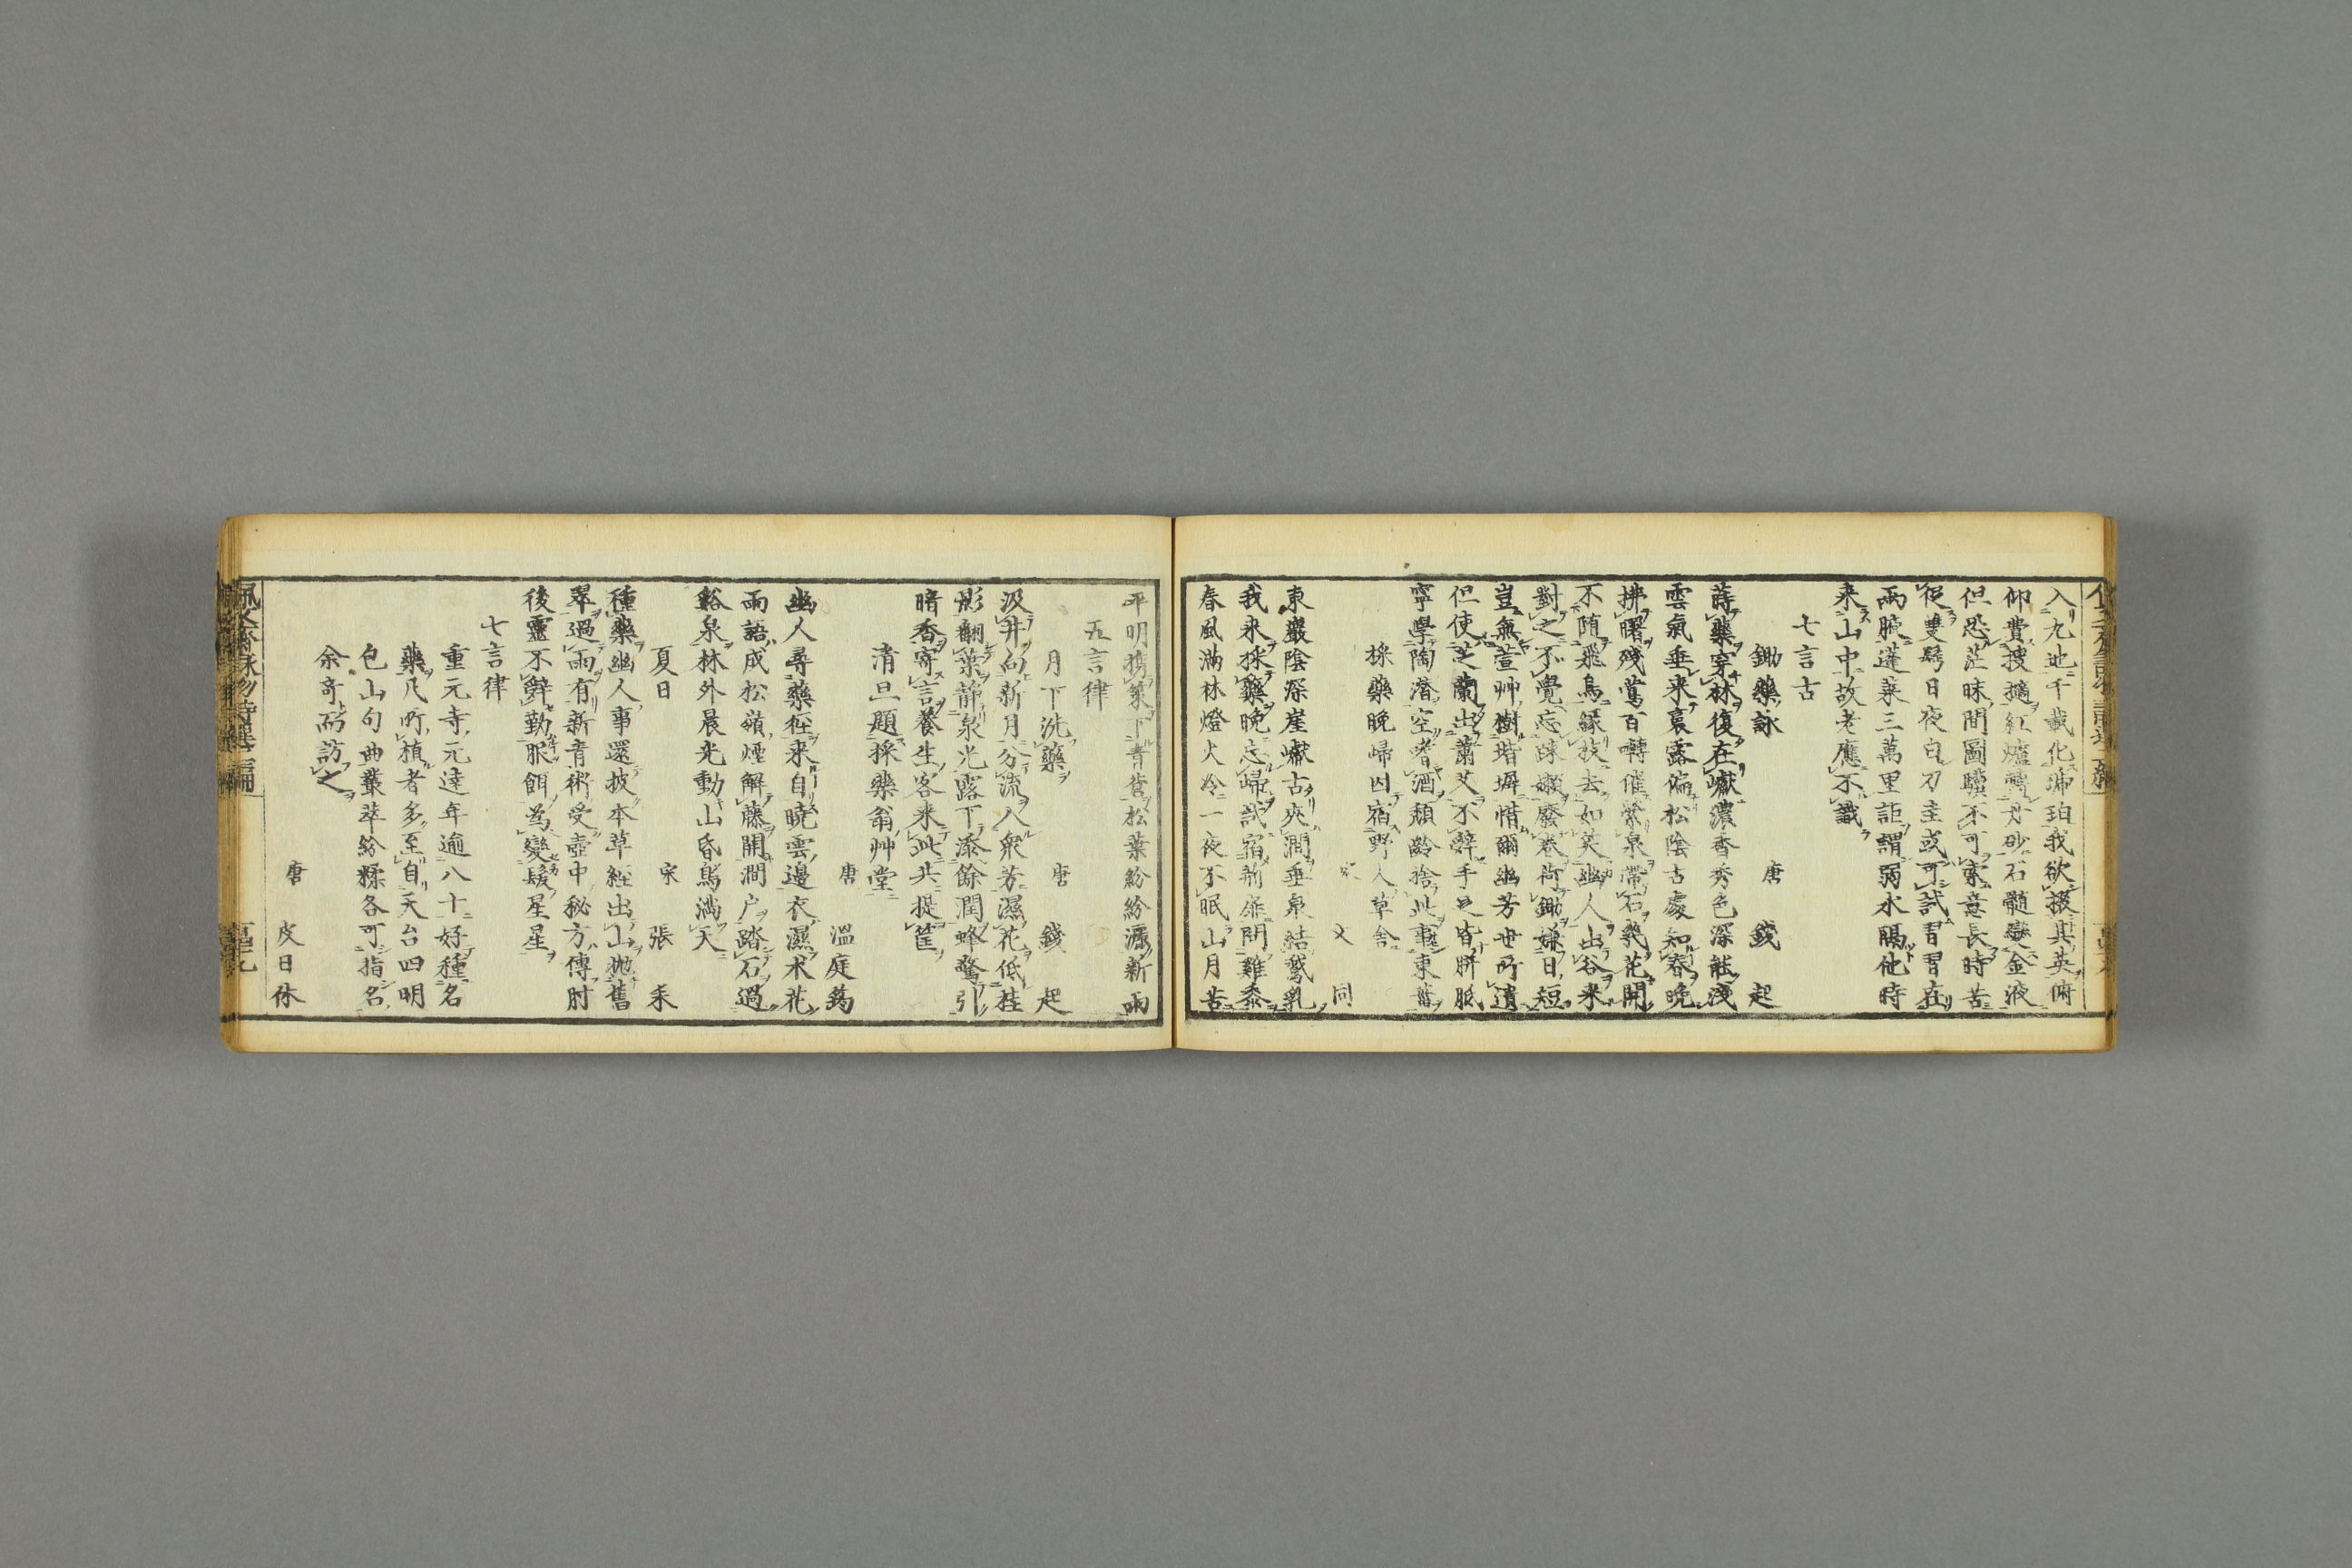 入九地千載化琥珀我欲掇其英俯
仰費搜擿紅爐轉丹砂石髓變金液
但恐茫昧間圖驥不可索意長時苦
促雙鬂日夜白刀圭或可試習習在
兩腋蓬萊三萬里詎謂弱水隔他時
来山中故老應不識
七言古
鋤藥詠
唐 錢起
蒔藥穿林復在巘濃香秀色深能淺
雲氣垂来裛露偏松陰占處知春晩
拂曙殘鶯百囀催縈泉帶石幾花開
不随飛鳥縁枝去如笑幽人出谷来
對之不覺忘疎嬾廢卷荷鋤嫌日短
豈無萱艸樹堦墀惜爾幽芳世所遺
但使芝蘭出蕭艾不辭手足皆胼胝
寧學陶潛空嗜酒頽齡捨此事東菑
採藥晩歸因宿野人草舍
宋 文同
東巖陰深崖巘古夾澗垂泉結鵞乳
我来採藥晩忘歸試宿前扉問雞黍
春風満林燈火冷一夜不眠山月苦
平明携策下青蒼松葉紛紛灑新雨
五言律
月下洗藥
唐 錢起
汲井向新月分流入衆芳濕花低桂
影翻葉静泉光露下添餘潤蜂驚引
暗香寄言養生客来此共提筐
清旦題採藥翁艸堂
唐 溫庭筠
幽人尋藥徑来自曉雲邊衣濕术花
雨語成松嶺煙解藤開澗户踏石過
谿泉林外晨光動山昏鳥満天
夏日
宋 張耒
種藥幽人事還披本草經出山抛舊
翠過雨有新青術受壺中秘方傳肘
後靈不辭勤服餌為變髮星星
七言律
重元寺元達年逾八十好種名
藥凡所植者多至自天台四明
包山句曲叢萃紛糅各可指名
余奇而訪之
唐 皮日休
佩文齋詠物詩選二編